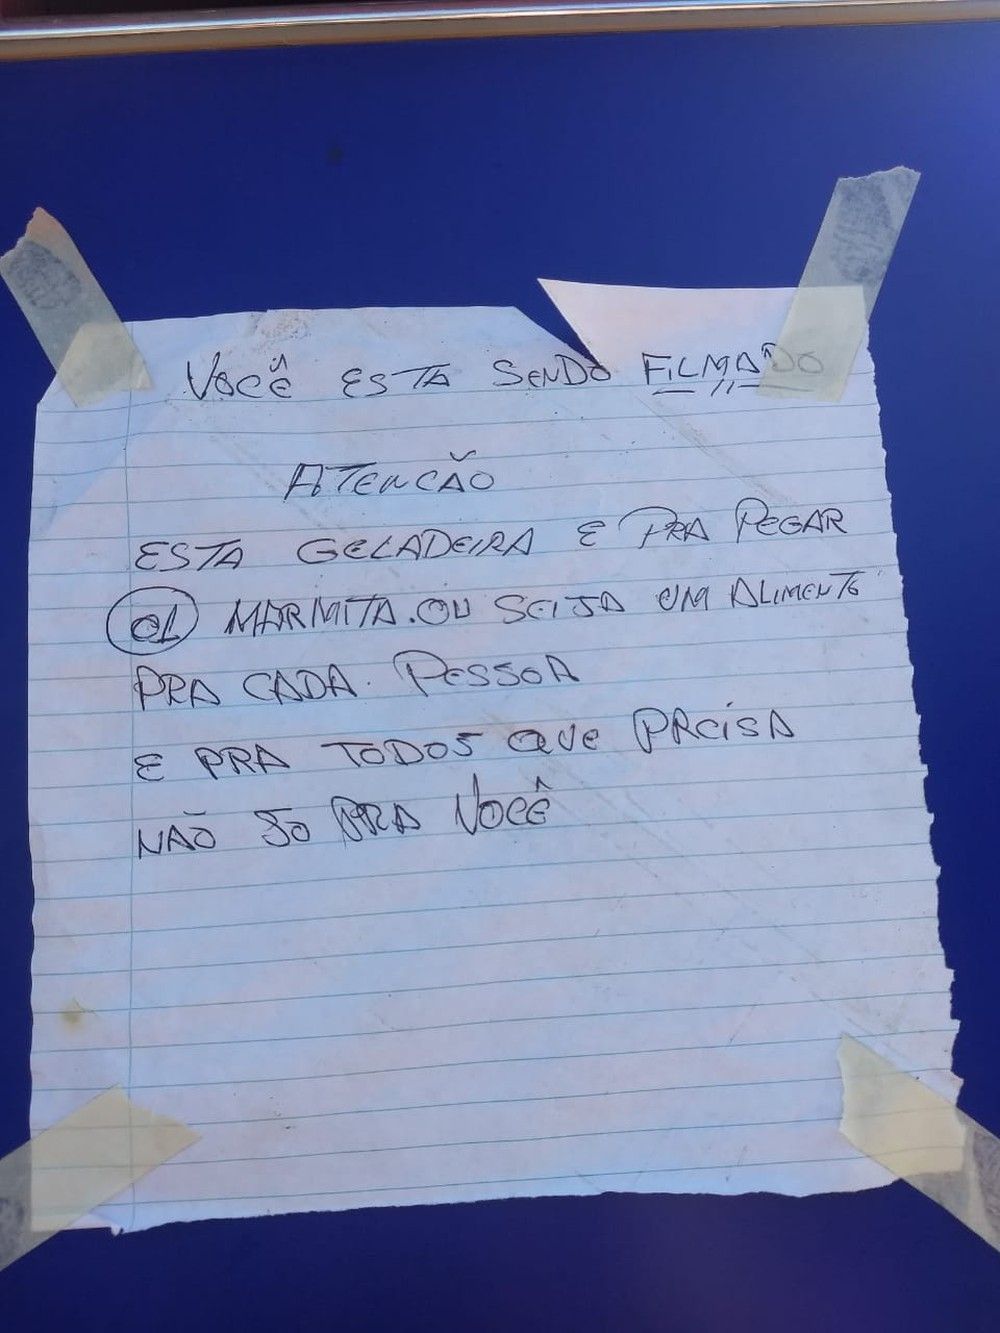 VOCÊ ESTA SENDO FILMADO
ATENCÃO
ESTA GELADEIRA E PRA PEGAR
01 MARMITA. OU SEIJA UM ALIMENTO
PRA CADA. PESSOA
E PRA TODOS QUE PRCISA
NÃO SO PRA VOCÊ